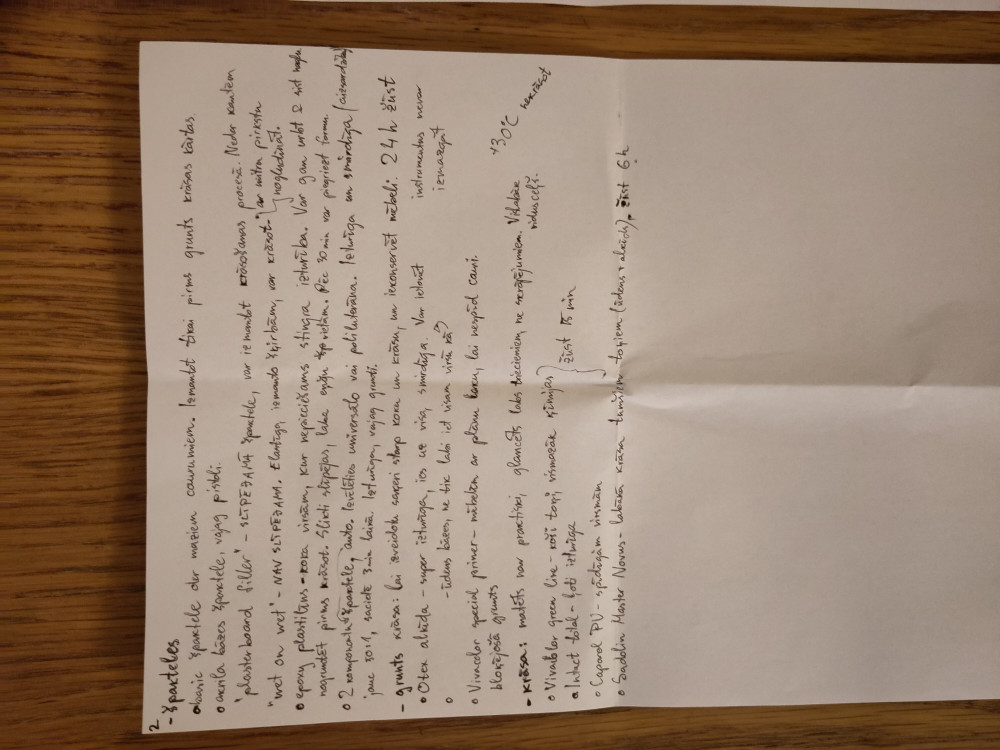 2
- špakteles
• basic špaktele der maziem caurumiem. Izmantot tikai pirms grunts krāsas kārtas.
• akrila bāzes špaktele, vajag pistoli.
"plasterboard filler" - SLĪPĒJAMĀ špaktele, var izmantot krāsošanas procesā. Nedar kantēm
"wet on wet" - NAV SLĪPĒJAMA. Elastīga, izmanto šķirbām, var krāsot. ar mitru pirkstu nogludināt.
• epoxy plastilīns - koka virsām, kur nepieciešams stingra izturība. Var gan urbt & sist naglu
nogruntēt pirms krāsot. Slikti slīpējas, laba eņģu vietām. Pēc 30 min var piegriezt formu.
• 2 komponentu špaktele, auto. Izvēlēties universālo vai poliuretāna. Izturīga un smirdīga (aizsardzība)
jauc 50:1, sacietē 3 min laikā. Izturīga, vajag grunti.
- grunts krāsa: lai izveidotu saķeri starp koku un krāsu, un iekonservēt mēbeli. 24 h žūst
• Otex alkīda - super izturīga, ies uz visa, smirdīga. Var ietonēt instrumentus nevar izmazgāt
• - ūdens bāzes, ne tik labi iet visam virsū kā
• Vivacolor special primer - mēbelēm ar plānu koku, lai nespīd cauri.
bloķējošā grunts
- krāsa: matēts nav praktiski, glancēts labs triecieniem, ne skrāpējumiem. Vislabāk viduscelš. +30°C nekrāsot
• Vivacolor green line - koši toņi, vismazāk ķīmijas
• Intact total - ļoti izturīga } žūst 15 min
• Caparol PU - spīdīgām virsmām
• Sadolin Master Novus - labākā krāsa tumšiem toņiem (ūdens + alkīds), žūst 6 h